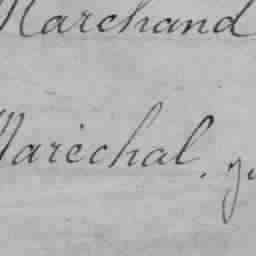 Marchand
Maréchal.